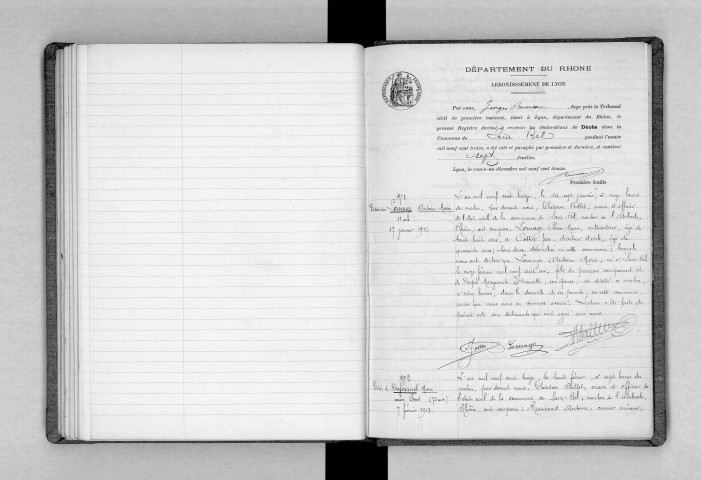 DÉPARTEMENT DU RHONE
ARRONDISSEMENT DE LYON
Par nous, Georges Juge près le Tribunal
civil de première instance, séant à Lyon, département du Rhône, le
présent Registre destiné à recevoir les déclarations de Décès dans la
Commune de Sain Bel pendant l'année
mil neuf cent treize, a été coté et paraphé par première et dernière, et contient
sept feuilles.
Lyon, le trente-un décembre mil neuf cent douze.
Première feuille
Nº 1
Décès de Lornage Antoine Marie
17 janvier 1913
L'an mil neuf cent treize, le dix sept janvier, à onze heures
du matin, par devant nous, maire et officier
de l'état civil de la commune de Sain Bel, canton de l'Arbresle,
Rhône, ont comparu Lornage Pierre Marie, cultivateur, âgé de
trente huit ans, et directeur d'école, âgé de
quarante ans, tous deux domiciliés en cette commune, lesquels
nous ont déclaré que Lornage Antoine Marie, né à Sain Bel
le onze février mil neuf cent un, fils du premier comparant et
de Marguerite son épouse, est décédé ce matin,
à cinq heures, dans le domicile de ses parents, en cette commune,
ainsi que nous nous en sommes assuré. Lecture a été faite du
présent acte aux déclarants qui ont signé avec nous.
Lornage
Nº 2
Décès de
7 février 1913.
L'an mil neuf cent treize, le huit février, à sept heures du
matin, par devant nous, maire et officier de
l'état civil de la commune de Sain Bel, canton de l'Arbresle,
Rhône, ont comparu Antoine, ouvrier mineur,